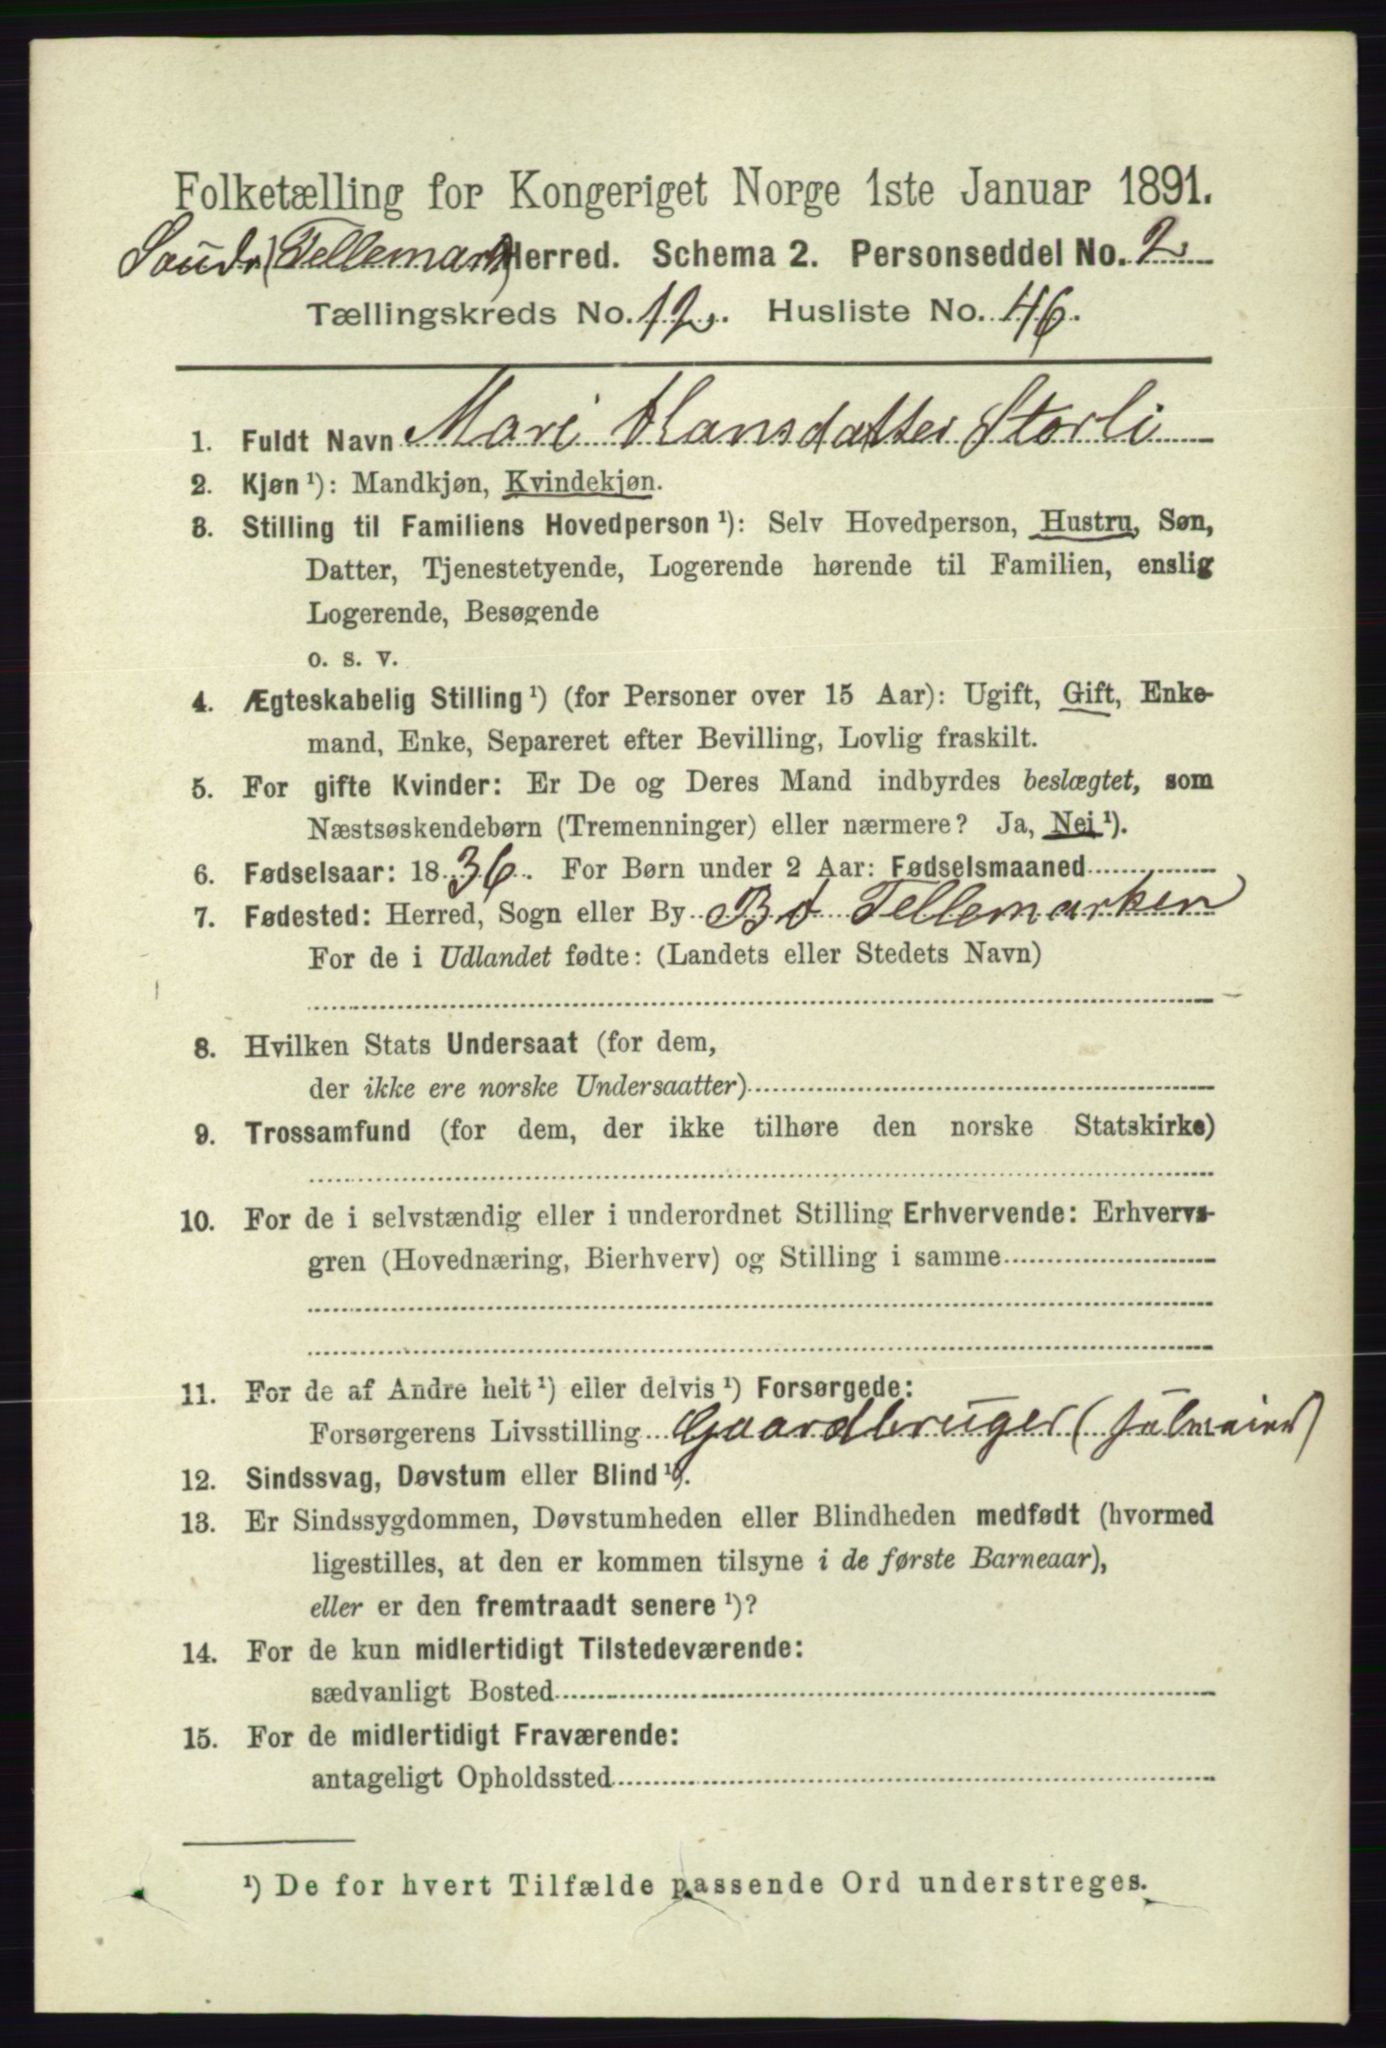 Folketælling for Kongeriget Norge 1ste Januar 1891.
Saude (Tellemark) Herred. Schema 2. Personseddel No. 2
Tællingskreds No. 12. Husliste No. 46.
1. Fuldt Navn Mari Hansdatter Storli
2. Kjøn ¹): Mandkjøn, Kvindekjøn.
3. Stilling til Familiens Hovedperson ¹): Selv Hovedperson, Hustru, Søn,
Datter, Tjenestetyende, Logerende hørende til Familien, enslig
Logerende, Besøgende
o. s. v.
4. Ægteskabelig Stilling ¹) (for Personer over 15 Aar): Ugift, Gift, Enke-
mand, Enke, Separeret efter Bevilling, Lovlig fraskilt.
5. For gifte Kvinder: Er De og Deres Mand indbyrdes beslægtet, som
Næstsøskendebørn (Tremenninger) eller nærmere? Ja, Nei ¹).
6. Fødselsaar: 1836. For Børn under 2 Aar: Fødselsmaaned
7. Fødested: Herred, Sogn eller By Bø Tellemarken
For de i Udlandet fødte: (Landets eller Stedets Navn)
8. Hvilken Stats Undersaat (for dem,
der ikke ere norske Undersaatter)
9. Trossamfund (for dem, der ikke tilhøre den norske Statskirke)
10. For de i selvstændig eller i underordnet Stilling Erhvervende: Erhvervs-
gren (Hovednæring, Bierhverv) og Stilling i samme
11. For de af Andre helt ¹) eller delvis ¹) Forsørgede:
Forsørgerens Livsstilling Gaardbruger (Selveier)
12. Sindssvag, Døvstum eller Blind ¹).
13. Er Sindssygdommen, Døvstumheden eller Blindheden medfødt (hvormed
ligestilles, at den er kommen tilsyne i de første Barneaar),
eller er den fremtraadt senere ¹)?
14. For de kun midlertidigt Tilstedeværende:
sædvanligt Bosted
15. For de midlertidigt Fraværende:
antageligt Opholdssted
¹) De for hvert Tilfælde passende Ord understreges.